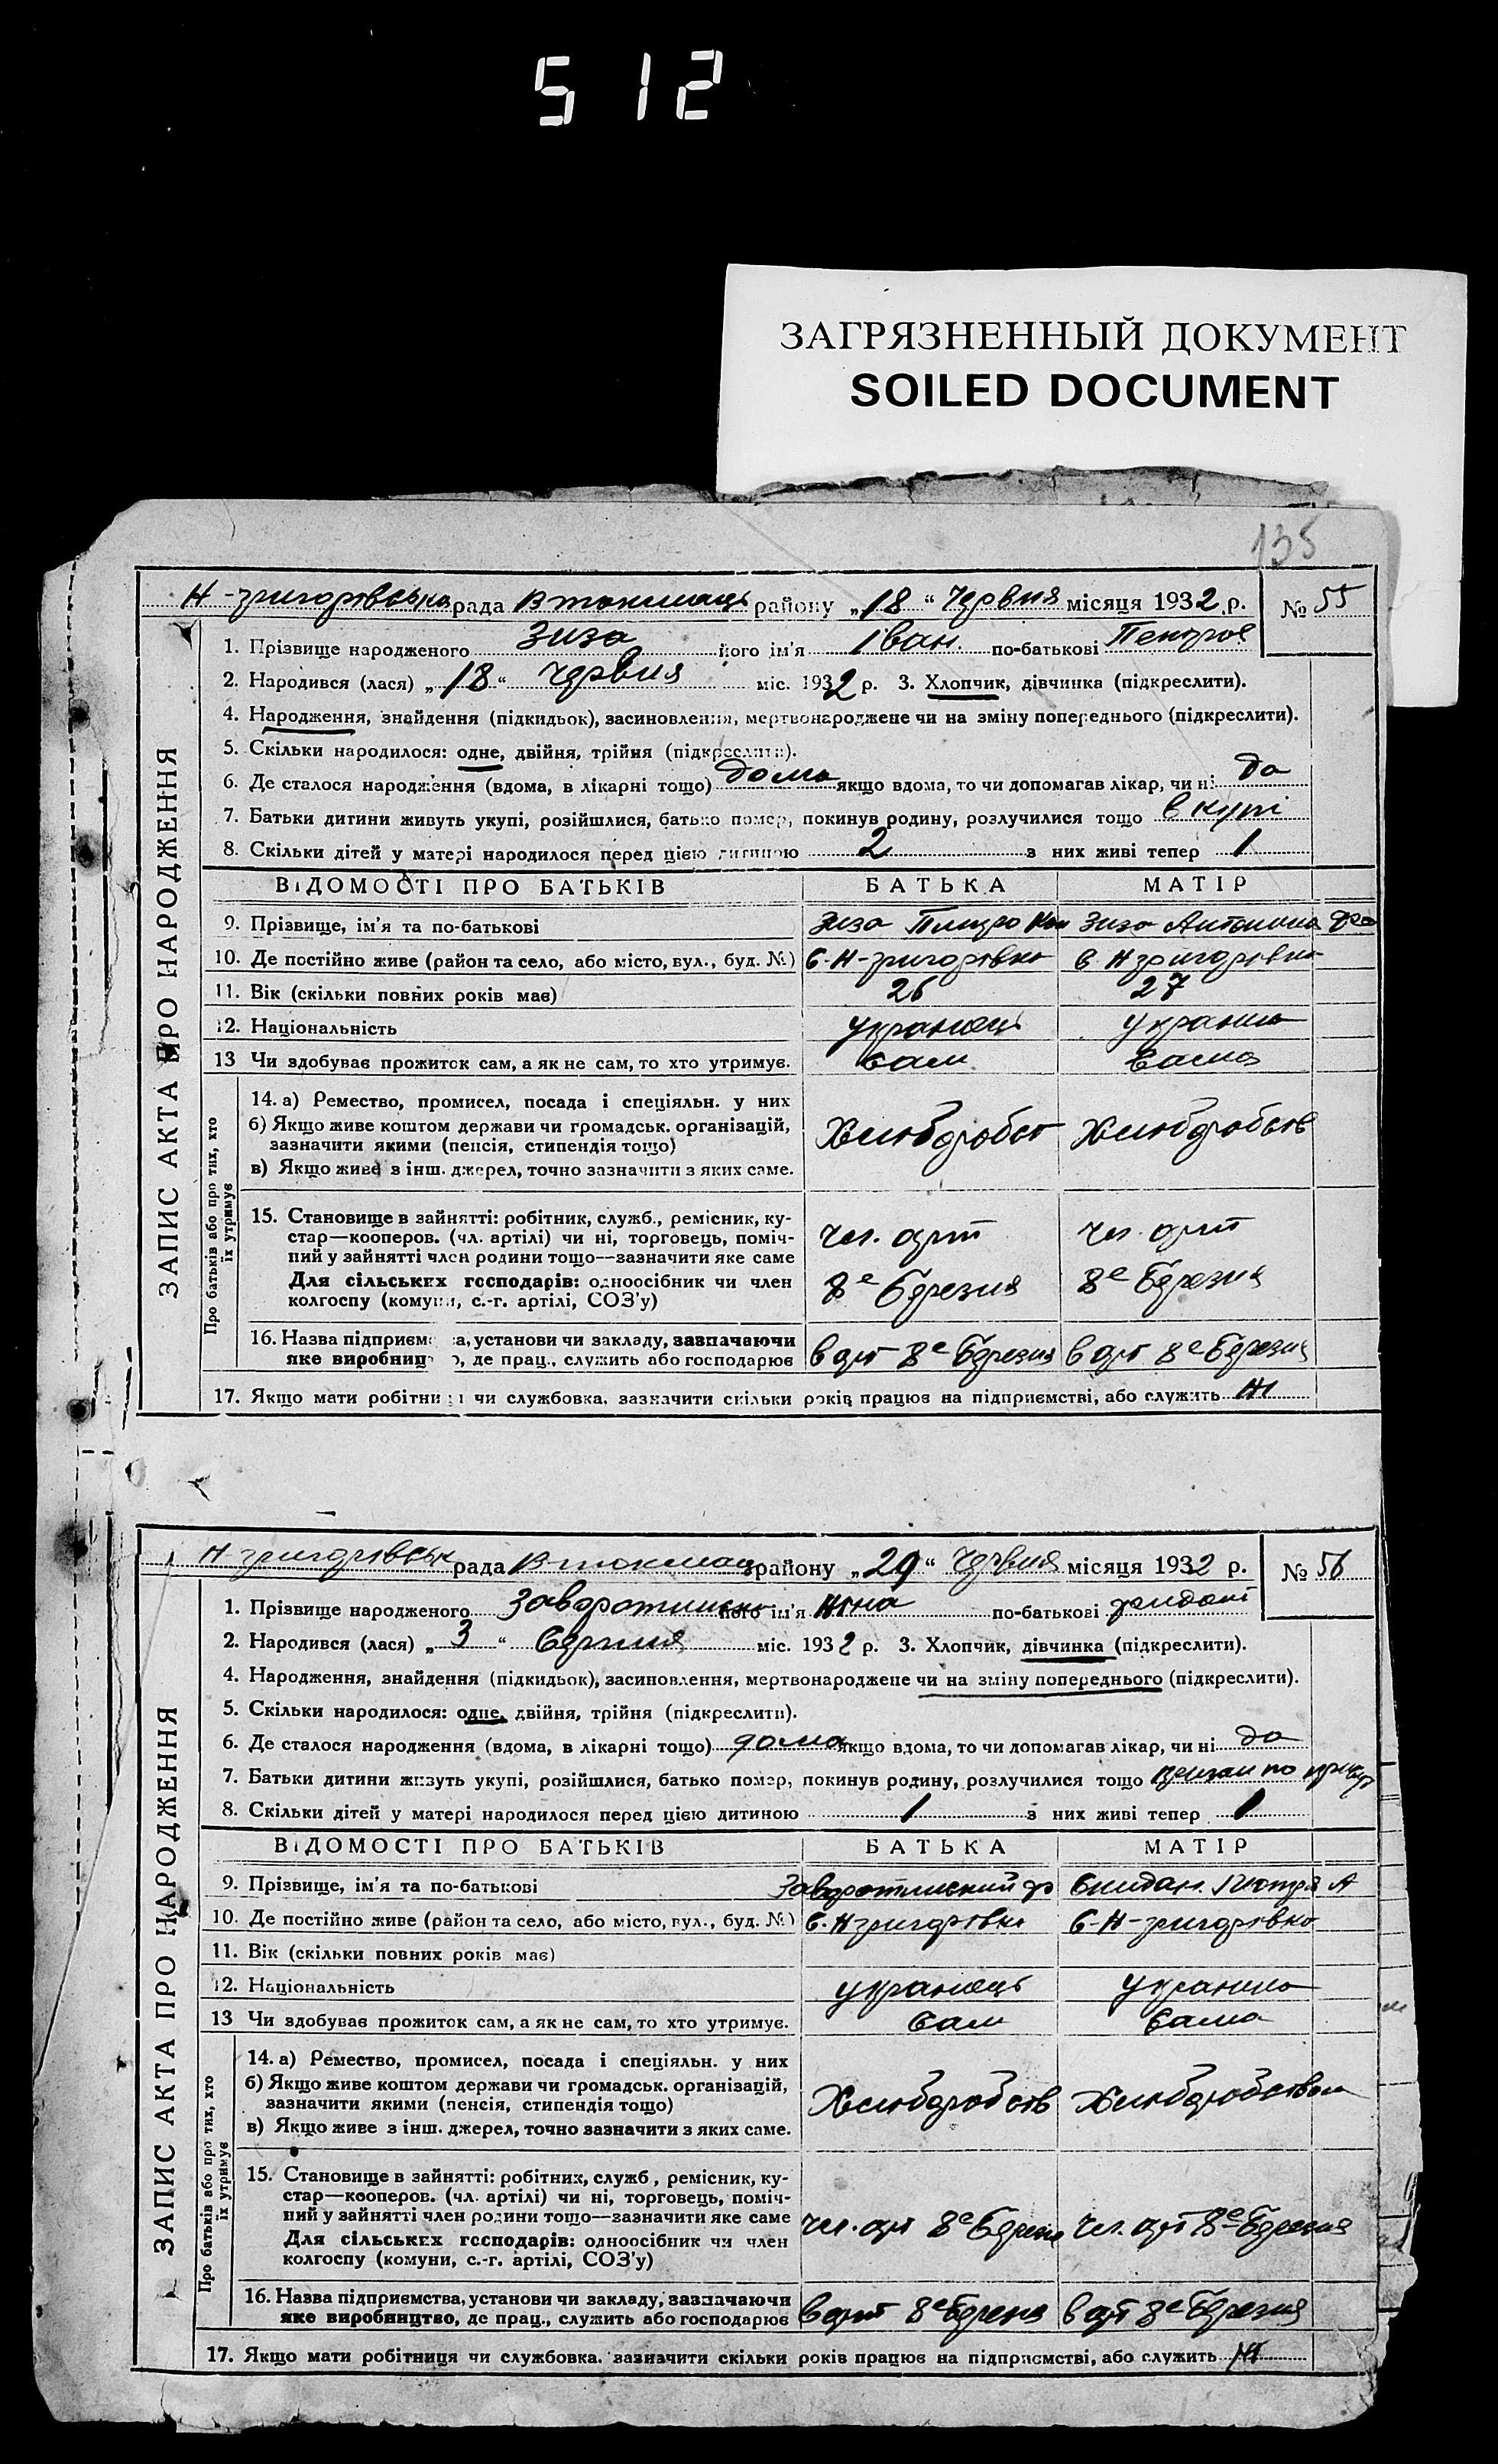 512
ЗАГРЯЗНЕННЫЙ ДОКУМЕНТ
SOILED DOCUMENT
135
ЗАПИС АКТА ПРО НАРОДЖЕННЯ
Н-григорівська рада Втокмаць району „18“ червня місяця 1932 р. № 55
1. Прізвище народженого Зиза його ім'я Іван. по-батькові Петров
2. Народився (лася) „18“ червня міс. 1932 р. 3. Хлопчик, дівчинка (підкреслити).
4. Народження, знайдення (підкидьок), засиновлення, мертвонароджене чи на зміну попереднього (підкреслити).
5. Скільки народилося: одне, двійня, трійня (підкреслити).
6. Де сталося народження (вдома, в лікарні тощо) дома якщо вдома, то чи допомагав лікар, чи ні да
7. Батьки дитини живуть укупі, розійшлися, батько помер, покинув родину, розлучилися тощо в купі
8. Скільки дітей у матері народилося перед цією дитиною 2 з них живі тепер 1
ВІДОМОСТІ ПРО БАТЬКІВ БАТЬКА МАТІР
9. Прізвище, ім'я та по-батькові Зиза Петро Зиза Антонина
10. Де постійно живе (район та село, або місто, вул., буд. №) С-Н-григорівка С Н григорівка
11. Вік (скільки повних років має) 26 27
12. Національність Укранець Украинка
13 Чи здобуває прожиток сам, а як не сам, то хто утримує. Сам Сама
Про батьків або про тих, хто їх утримує
14. а) Ремество, промисел, посада і спеціяльн. у них
б) Якщо живе коштом держави чи громадськ. організацій,
зазначити якими (пенсія, стипендія тощо) Хліборобст Хліборобств
в) Якщо живе з інш. джерел, точно зазначити з яких саме.
15. Становище в зайнятті: робітник, служб., ремісник, ку-
стар—кооперов. (чл. артілі) чи ні, торговець, поміч- Чл. арт Чл. арт
ний у зайнятті член родини тощо—зазначити яке саме
Для сільських господарів: одноосібник чи член 8е березня 8е березня
колгоспу (комуни, с.-г. артілі, СОЗ'у)
16. Назва підприємства, установи чи закладу, зазначаючи
яке виробництво, де прац., служить або господарює в арт 8е березня в арт 8е березня
17. Якщо мати робітниця чи службовка, зазначити скільки років працює на підприємстві, або служить ні
ЗАПИС АКТА ПРО НАРОДЖЕННЯ
Н-григорівськ рада Втокмац району „29“ червня місяця 1932 р. № 56
1. Прізвище народженого його ім'я Ніна по-батькові
2. Народився (лася) „3“ міс. 1932 р. 3. Хлопчик, дівчинка (підкреслити).
4. Народження, знайдення (підкидьок), засиновлення, мертвонароджене чи на зміну попереднього (підкреслити).
5. Скільки народилося: одне, двійня, трійня (підкреслити).
6. Де сталося народження (вдома, в лікарні тощо) дома якщо вдома, то чи допомагав лікар, чи ні да
7. Батьки дитини живуть укупі, розійшлися, батько помер, покинув родину, розлучилися тощо
8. Скільки дітей у матері народилося перед цією дитиною 1 з них живі тепер 1
ВІДОМОСТІ ПРО БАТЬКІВ БАТЬКА МАТІР
9. Прізвище, ім'я та по-батькові Скидан А
10. Де постійно живе (район та село, або місто, вул., буд. №) С-Н григорівка С-Н-григорівка
11. Вік (скільки повних років має)
12. Національність Украинець Украинка
13 Чи здобуває прожиток сам, а як не сам, то хто утримує. Сам Сама
Про батьків або про тих, хто їх утримує
14. а) Ремество, промисел, посада і спеціяльн. у них
б) Якщо живе коштом держави чи громадськ. організацій,
зазначити якими (пенсія, стипендія тощо) Хліборобств Хліборобством
в) Якщо живе з інш. джерел, точно зазначити з яких саме.
15. Становище в зайнятті: робітник, служб, ремісник, ку-
стар—кооперов. (чл. артілі) чи ні, торговець, поміч-
ний у зайнятті член родини тощо—зазначити яке саме Чл. арт 8е березня Чл. арт 8е березня
Для сільських господарів: одноосібник чи член
колгоспу (комуни, с.-г. артілі, СОЗ'у)
16. Назва підприємства, установи чи закладу, зазначаючи
яке виробництво, де прац., служить або господарює в арт 8е березня в арт 8е березня
17. Якщо мати робітниця чи службовка, зазначити скільки років працює на підприємстві, або служить ні